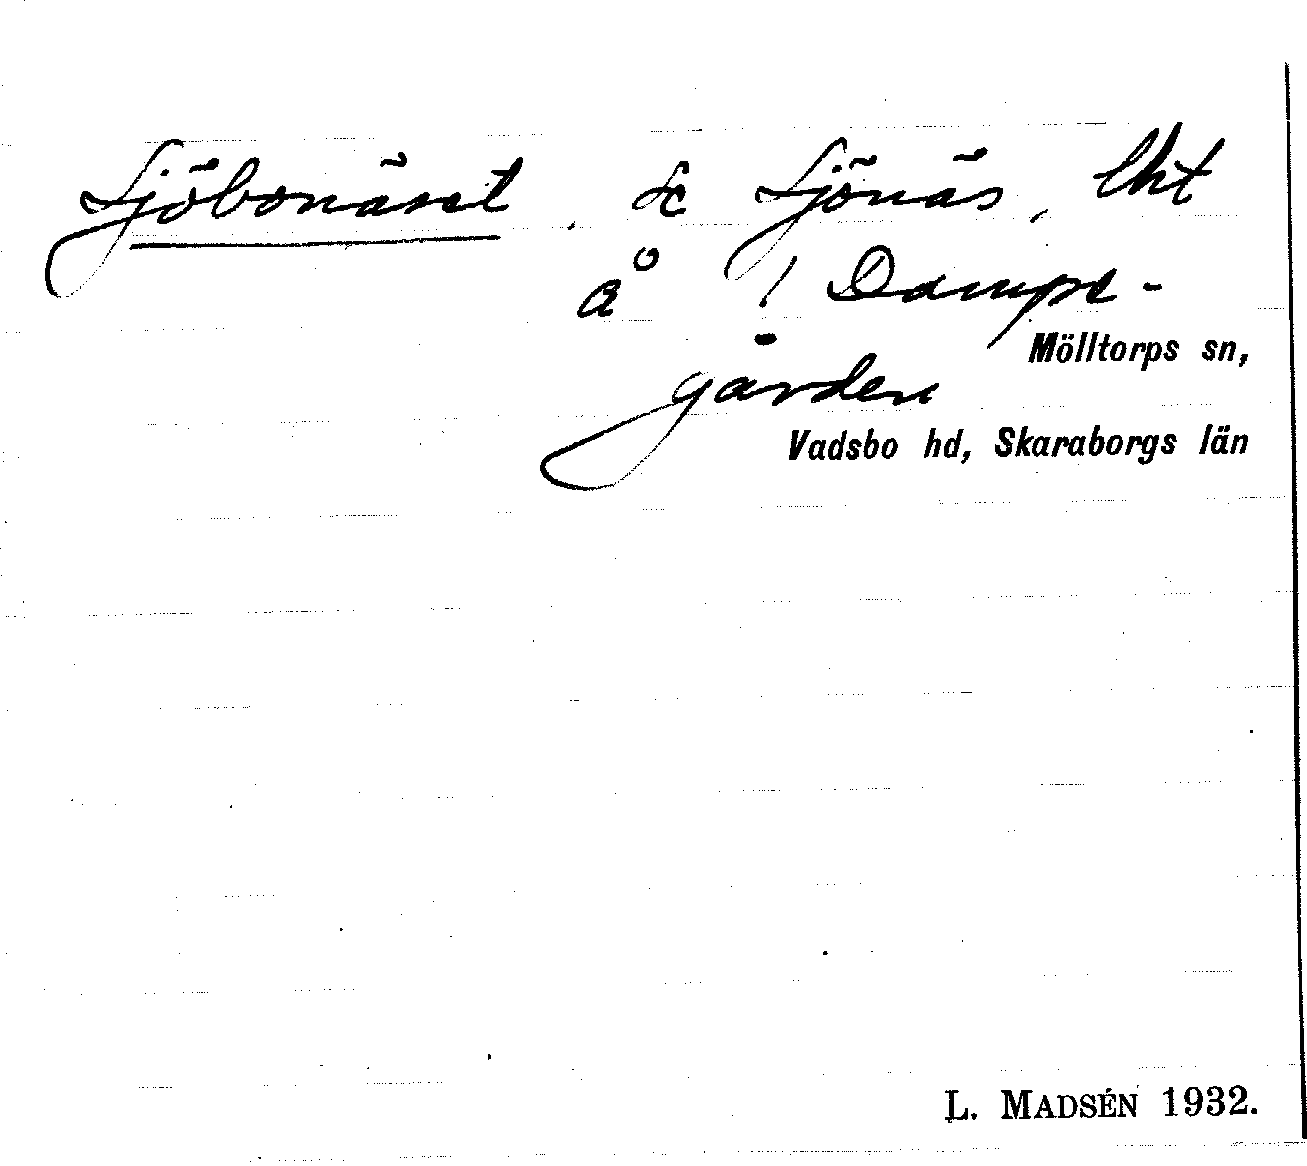 Sjöbonäset, se Sjönäs, lht
å 1 Dampe-
Mölltorps sn,
gården
Vadsbo hd, Skaraborgs län
L. MADSÉN 1932.